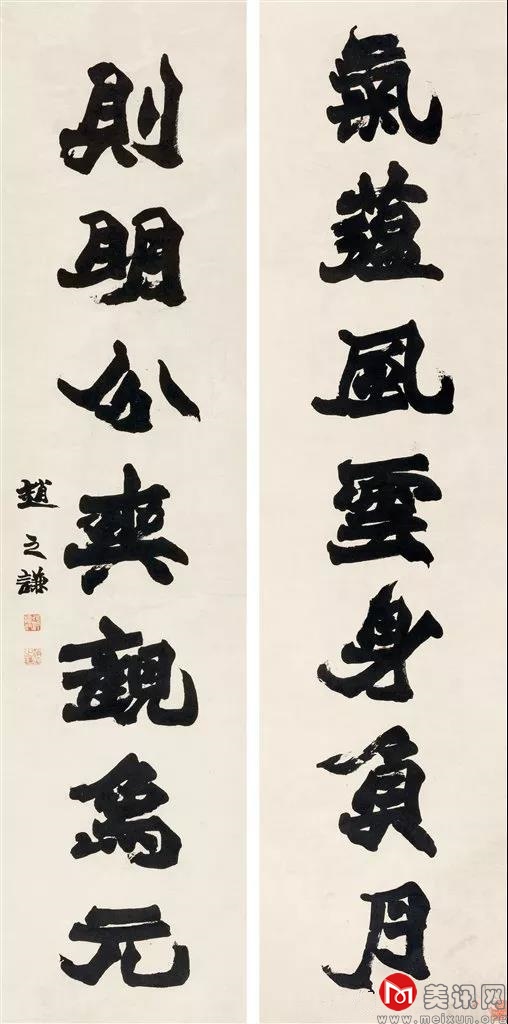 氣蘊風雲身負月
則明分爽觀象元
趙之謙
美讯网
www.meixun.org